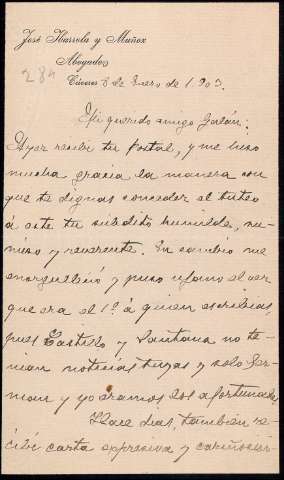 José Ibarrola y Muñoz
Abogados
284
Cáceres 8 de Enero de 1.903.
Mi querido amigo Galán:
Ayer recibí tu postal, y me hizo
mucha gracia la manera con
que te dignas conceder el tuteo
á este tu súbdito humilde, su-
miso y reverente. En cambio me
enorgulleció y puso ufano el ver
que era el 1º á quien escribías,
pues Castillo y Santana no te-
nían noticias tuyas y solo Ger-
man y yo eramos los afortunados
Hace dias, también re-
cibí carta expresiva y cariñosísi-